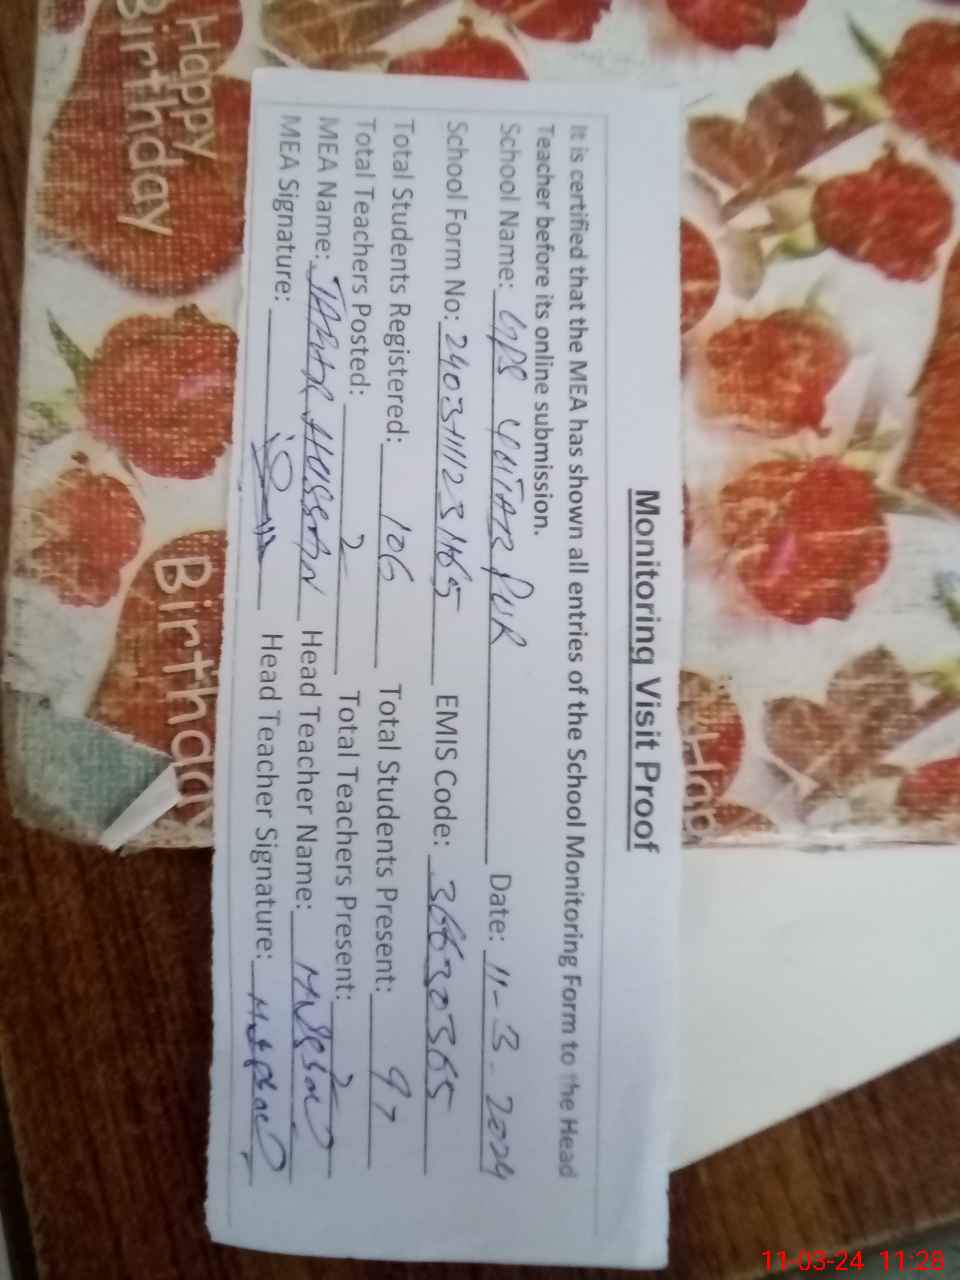 Monitoring Visit Proof
It is certified that the MEA has shown all entries of the School Monitoring Form to the Head
Teacher before its online submission.
School Name: GPS PUR Date: 11-3-2024
School Form No: EMIS Code: 36630365
Total Students Registered: 106 Total Students Present: 97
Total Teachers Posted: 2 Total Teachers Present: 2
MEA Name: HUSSAIN Head Teacher Name:
MEA Signature: Head Teacher Signature:
Happy
Birthday
Birthday
Hap
11-03-24 11:28